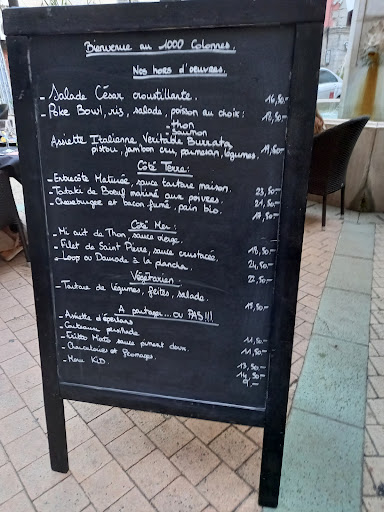 Bienvenue au 1000 Colonnes.
Nos hors d'oeuvres.
- Salade César croustillante. 16,50.-
- Poke Bowl, riz, salade, poisson au choix : 18,50.-
- thon
- Saumon
Assiette Italienne Véritable Burrata, 19,50.-
pistou, jambon cru, parmesan, légumes.
Côté Terre :
- Entrecôte Maturée, sauce tartare maison. 23,50.-
- Tataki de Boeuf mariné aux poivres. 21,50.-
- Cheeseburger et bacon fumé, pain bio. 19,50.-
Côté Mer :
- Mi cuit de Thon, sauce vierge. 18,50.-
- Filet de Saint Pierre, sauce crustacée. 24,50.-
- Loup ou Daurade à la plancha. 22,50.-
Végétarien
- Tartare de légumes, frites, salade. 15,50.-
A partager... ou PAS !!!
- Assiette d'éperlans 11,50.-
- Couteaux persillade 11,50.-
- sauce piment doux. 13,50.-
- Charcuteries et fromages. 14,50.-
- Menu Kid. 9.-